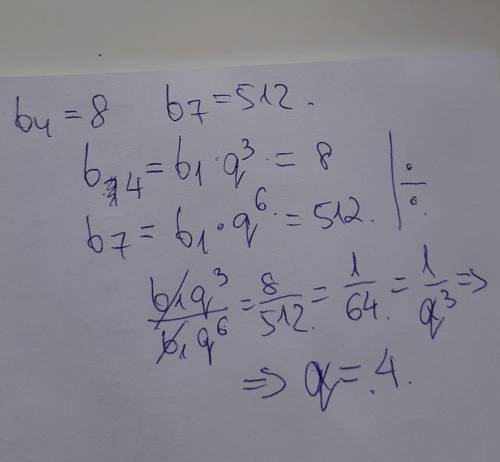 b₄ = 8 b₇ = 512.
b₄ = b₁ · q³ = 8
b₇ = b₁ · q⁶ = 512. | ÷
b₁q³/b₁q⁶ = 8/512 = 1/64 = 1/q³ ⇒
⇒ q = 4.